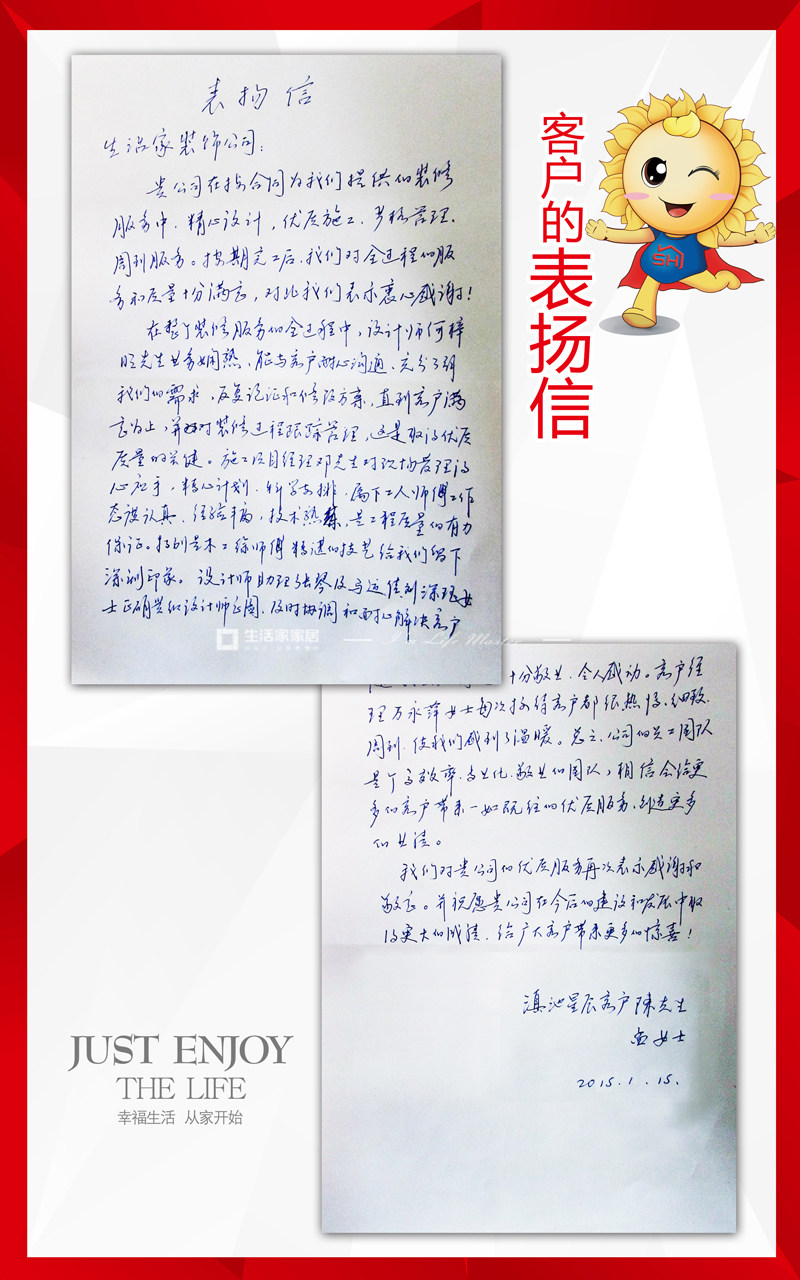 表扬信
生活家装饰公司：
贵公司在按合同为我们提供的装修
服务中，精心设计，优质施工，严格管理，
周到服务。按期完工后，我们对全过程的服
务和质量十分满意，对此我们表示衷心感谢！
在整个装修服务的全过程中，设计师何梓
旺先生业务娴熟，能与客户耐心沟通，充分了解
我们的需求，反复论证和修改方案，直到客户满
意为止，并对装修过程跟踪管理，这是取得优质
质量的关键。施工项目经理邓先生对现场管理得
心应手，精心计划，科学安排，属下工人师傅工作
态度认真，经验丰富，技术熟练，是工程质量的有力
保证。特别是木工徐师傅精湛的技艺给我们留下
深刻印象。设计师助理张琴及
士正确贯彻设计师意图，及时协调和耐心解决客户
生活家家居
I'm Life Master
十分敬业，令人感动。客户经
理万永萍女士每次接待客户都很热情、细致、
周到，使我们感到了温暖。总之，公司的员工团队
是个高效率、专业化、敬业的团队，相信会给更
多的客户带来一如既往的优质服务，创造更多
的业绩。
我们对贵公司的优质服务再次表示感谢和
敬意。并祝愿贵公司在今后的建设和发展中取
得更大的成绩，给广大客户带来更多的惊喜！
滇池星辰客户陈先生
女士
2015.1.15.
客户的表扬信
SH
JUST ENJOY
THE LIFE
幸福生活 从家开始